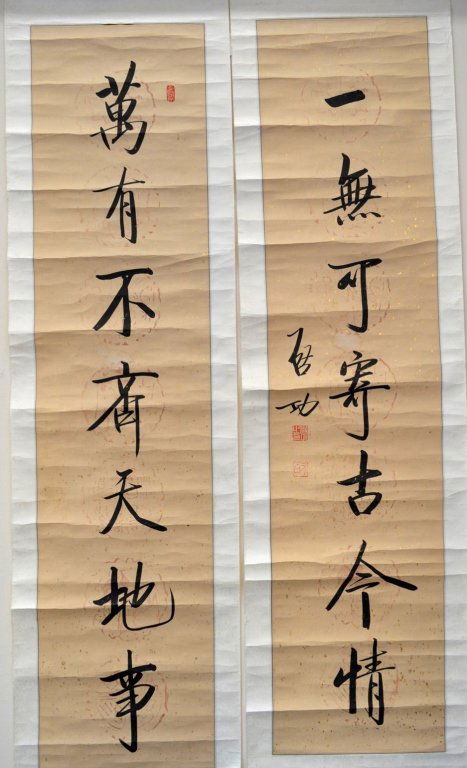 萬有不齊天地事
一無可寄古今情
启功